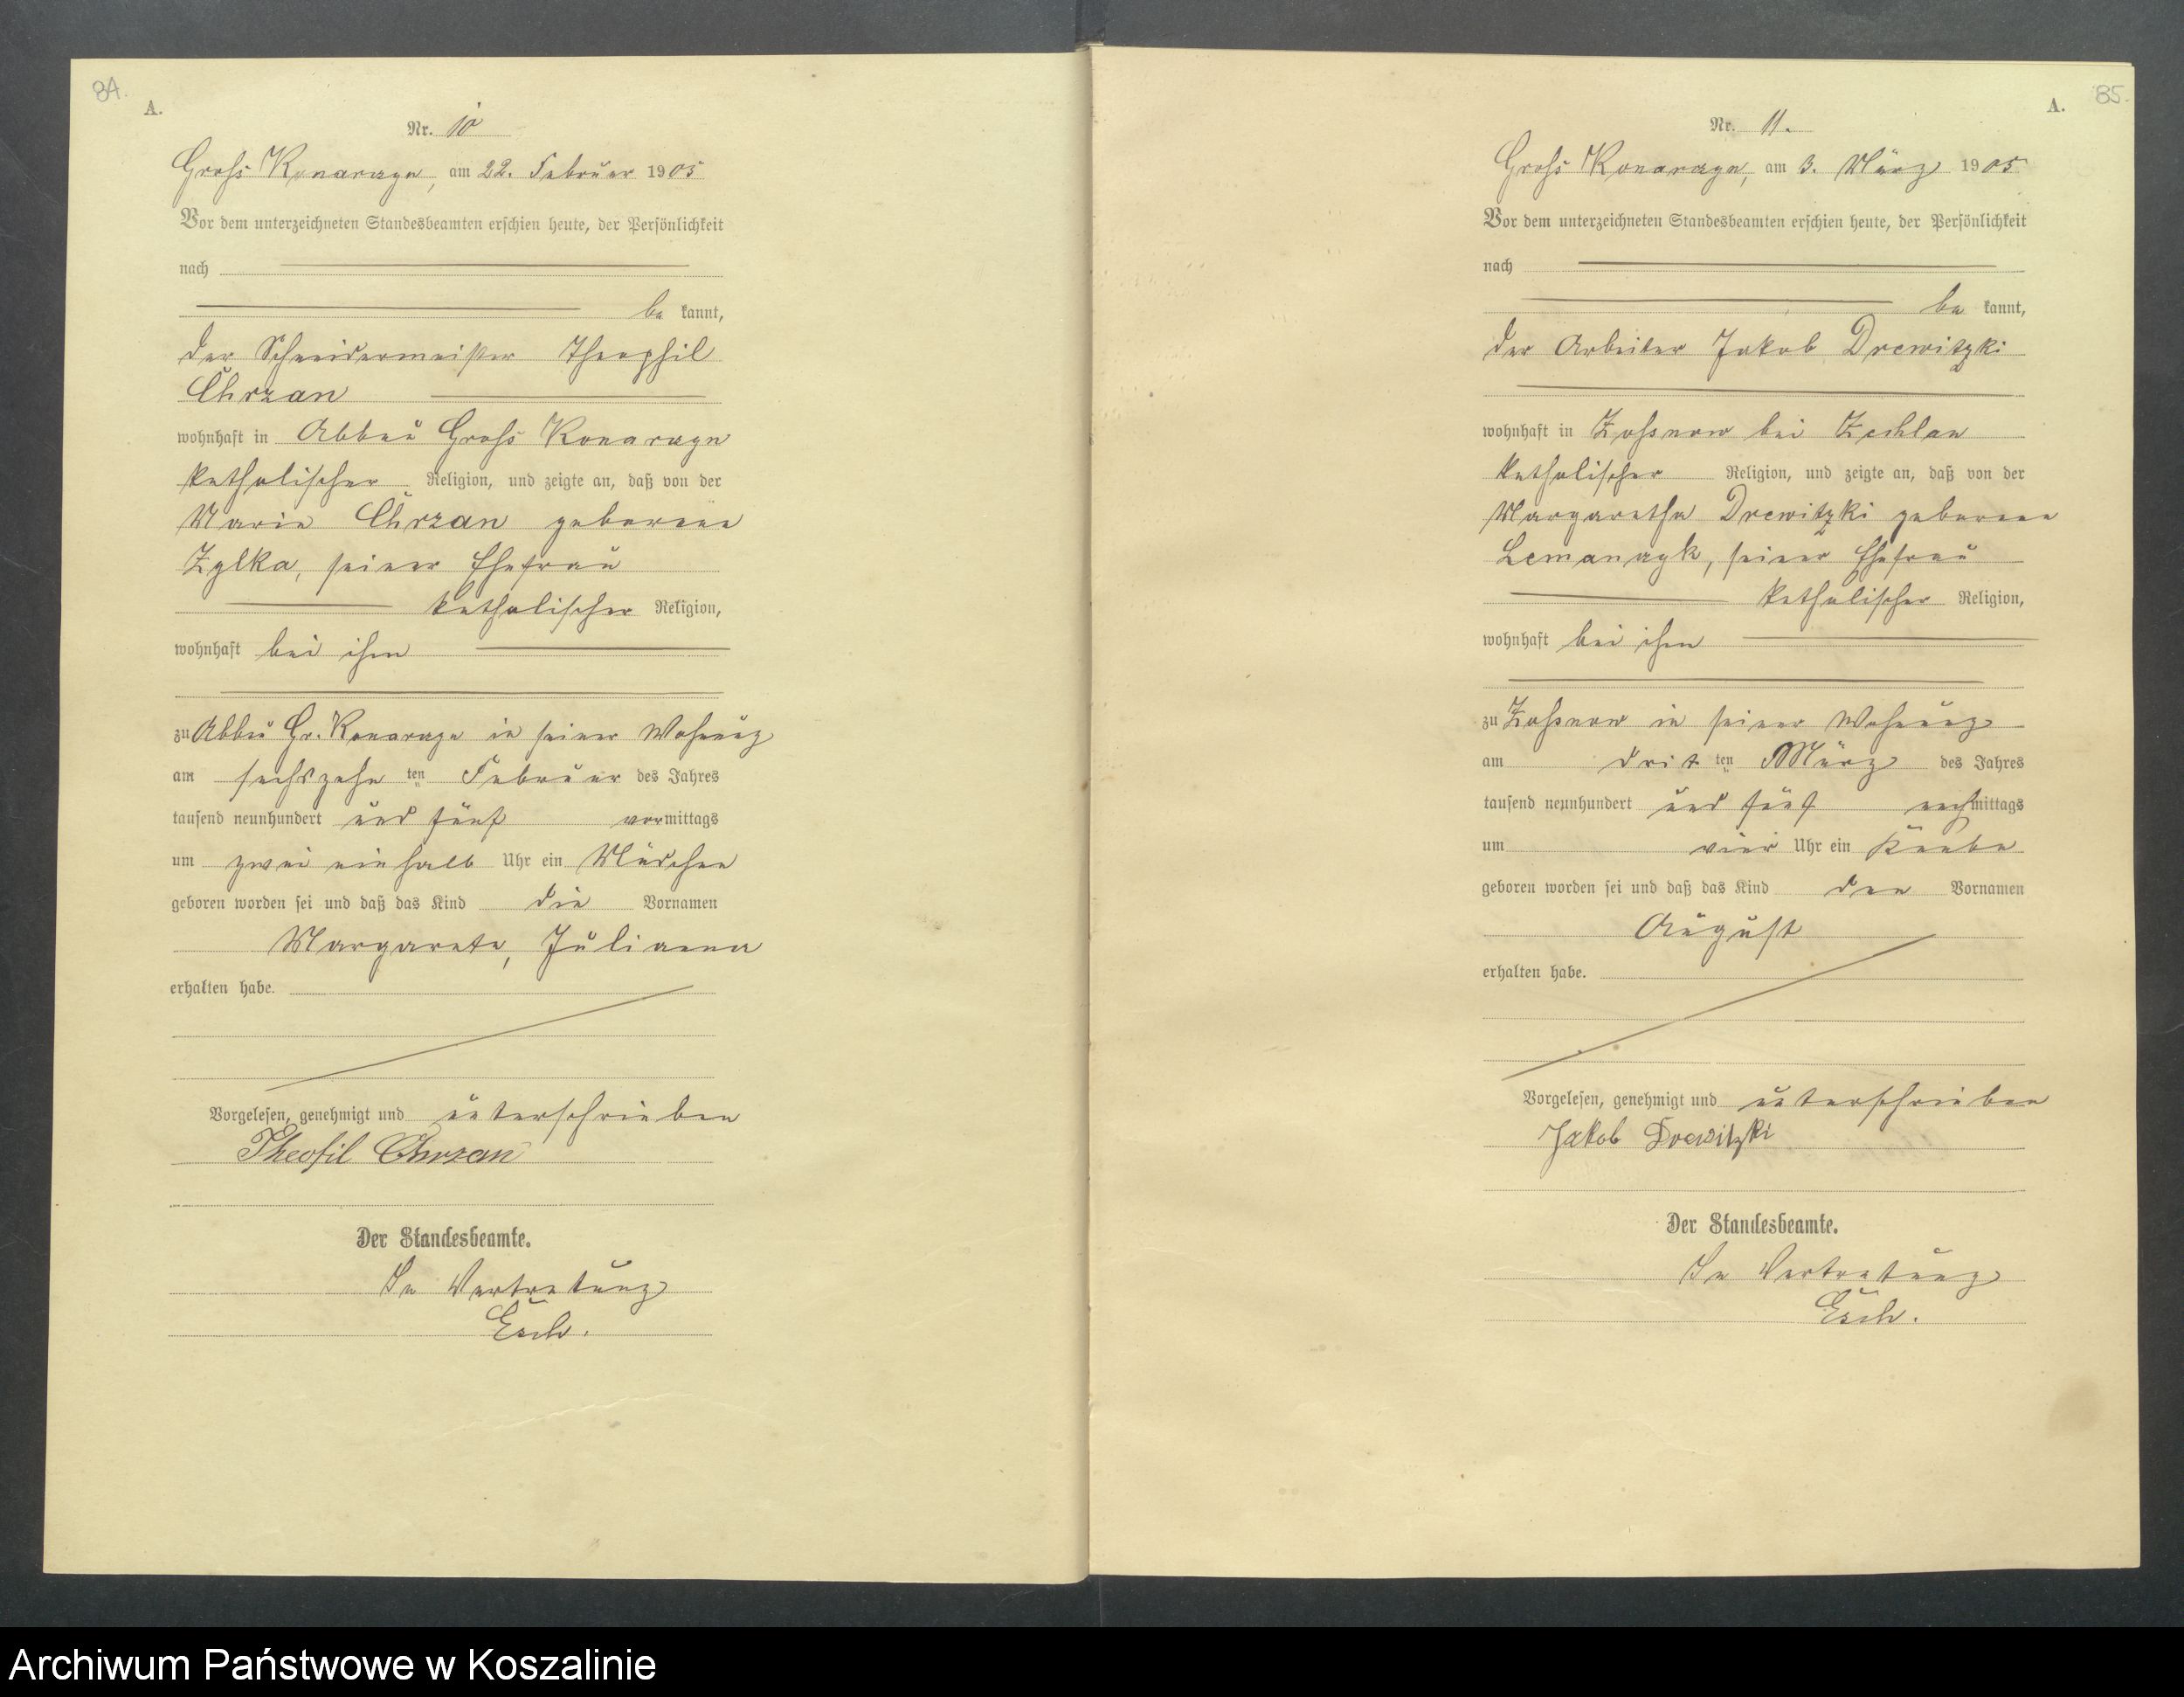 84.
A.
Nr. 10
Groß Konarzyn, am 22. Februar 1905
Vor dem unterzeichneten Standesbeamten erschien heute, der Persönlichkeit
nach
be kannt,
der Schneidermeister Theophil
Chrzan
wohnhaft in Abbau Groß Konarzyn
katholischer Religion, und zeigte an, daß von der
Marie Chrzan geborene
Zylka, seiner Ehefrau
katholischer Religion,
wohnhaft bei ihm
zu Abbau Gr. Konarzyn in seiner Wohnung
am sechszehn ten Februar des Jahres
tausend neunhundert und fünf vormittags
um zwei ein halb Uhr ein Mädchen
geboren worden sei und daß das Kind die Vornamen
Margarete, Julianna
erhalten habe.
Vorgelesen, genehmigt und unterschrieben
Theofil Chrzan
Der Standesbeamte.
In Vertretung
Esch.
85.
A.
Nr. 11.
Groß Konarzyn, am 3. März 1905
Vor dem unterzeichneten Standesbeamten erschien heute, der Persönlichkeit
nach
be kannt,
der Arbeiter Jakob Drewitzki
wohnhaft in Zoßnow bei Zechlau
katholischer Religion, und zeigte an, daß von der
Margaretha Drewitzki geborene
Lemanzyk, seiner Ehefrau
katholischer Religion,
wohnhaft bei ihm
zu Zoßnow in seiner Wohnung
am drit ten März des Jahres
tausend neunhundert und fünf nachmittags
um vier Uhr ein Knabe
geboren worden sei und daß das Kind den Vornamen
August
erhalten habe.
Vorgelesen, genehmigt und unterschrieben
Jakob Drewitzki
Der Standesbeamte.
In Vertretung
Esch.
Archiwum Państwowe w Koszalinie